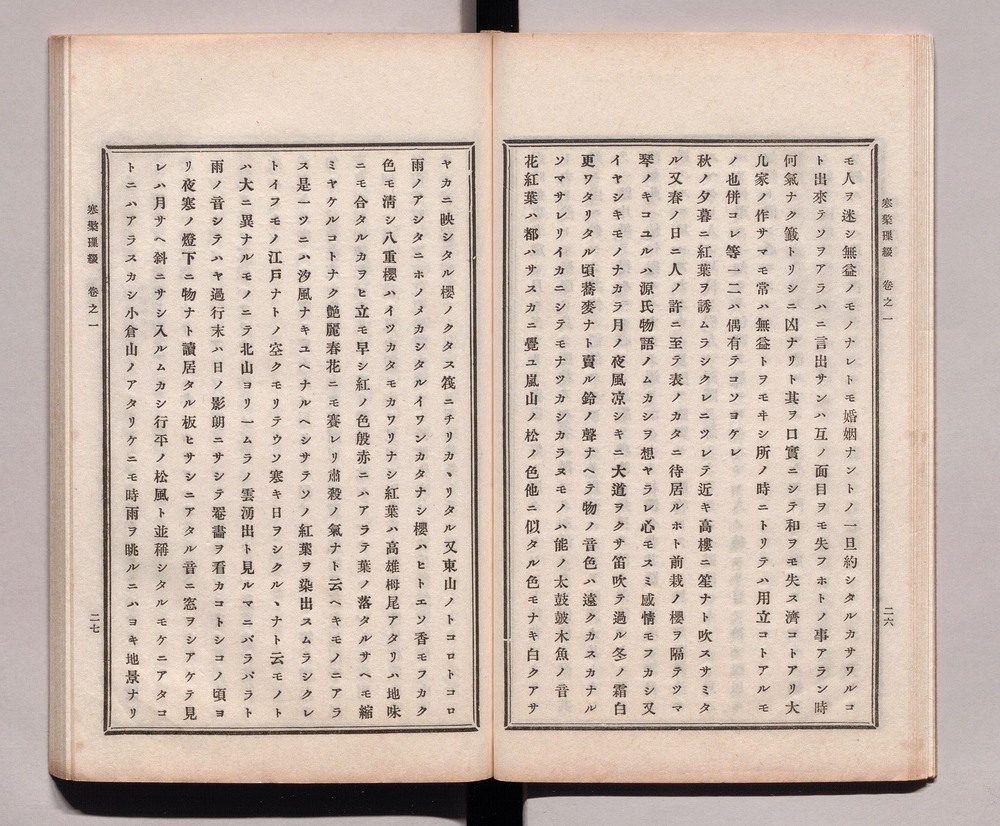 寒檠璅綴 卷之一
二六
モ人ヲ迷シ無益ノモノナレトモ婚姻ナントノ一旦約シタルカサワルコ
ト出來テソヲアラハニ言出サンハ互ノ面目ヲモ失フホトノ事アラン時
何氣ナク籤トリシニ凶ナリト其ヲ口實ニシテ和ヲモ失ス濟コトアリ大
凢家ノ作サマモ常ハ無益トヲモキシ所ノ時ニトリテハ用立コトアルモ
ノ也併コレ等一二ハ偶有テコソヨケレ
秋ノ夕暮ニ紅葉ヲ誘ムラシクレニツレテ近キ高樓ニ笙ナト吹スサミタ
ル又春ノ日ニ人ノ許ニ至テ表ノカタニ待居ルホト前栽ノ櫻ヲ隔テツマ
琴ノキコユルハ源氏物語ノムカシヲ想ヤラレ心モスミ感情モフカシ又
イヤシキモノナカラ月ノ夜風凉シキニ大道ヲクサ笛吹テ過ル冬ノ霜白
更ワタリタル頃蕎麥ナト賣ル鈴ノ聲ナヘテ物ノ音色ハ遠クカスカナル
ソマサレリイカニシテモナツカシカラヌモノハ能ノ太鼓鼓木魚ノ音
花紅葉ハ都ハサスカニ覺ユ嵐山ノ松ノ色他ニ似タル色モナキ白クアサ
ヤカニ映シタル櫻ノクタス筏ニチリカヽリタル又東山ノトコロトコロ
雨ノアシタニホノメカシタルイワンカタナシ櫻ハヒトエソ香モフカク
色モ清シ八重櫻ハイツカタモカワリナシ紅葉ハ高雄栂尾アタリハ地味
ニモ合タルカヲヒ立モ早シ紅ノ色殷赤ニハアラテ葉ノ落タルサヘモ縮
ミヤケルコトナク艶麗春花ニモ賽レリ肅殺ノ氣ナト云ヘキモノニアラ
ス是一ツニハ汐風ナキユヘナルヘシサテソノ紅葉ヲ染出スムラシクレ
トイフモノ江戸ナトノ空クモリテウソ寒キ日ヲシクルヽナト云モノト
ハ大ニ異ナルモノニテ北山ヨリ一ムラノ雲湧出ト見ルマニバラバラト
雨ノ音シテハヤ過行末ハ日ノ影朗ニサシテ罨畵ヲ看カコトシコノ頃ヨ
リ夜寒ノ燈下ニ物ナト讀居タル板ヒサシニアタル音ニ窓ヲシアケテ見
レハ月サヘ斜ニサシ入ルムカシ行平ノ松風ト並稱シタルモケニアタコ
トニハアラスカシ小倉山ノアタリケニモ時雨ヲ眺ルニハヨキ地景ナリ
寒檠璅綴 卷之一
二七